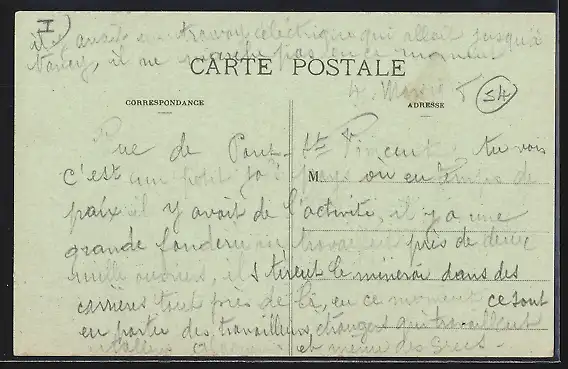 I
il y avait un tramway électrique qui allait jusqu'à
Nancy, il ne marche pas en ce moment
CARTE POSTALE
54
CORRESPONDANCE
ADRESSE
Vue de Pont-St Vincent tu vois
c'est un petit pays ou en temps de
M
paix il y avait de l'activité, il y a une
grande fonderie travaillait près de deux
mille ouvriers, ils tirent le minerai dans des
carrières tout près de là, en ce moment ce sont
en partie des travailleurs étrangers qui travaillent
et même des Grecs.